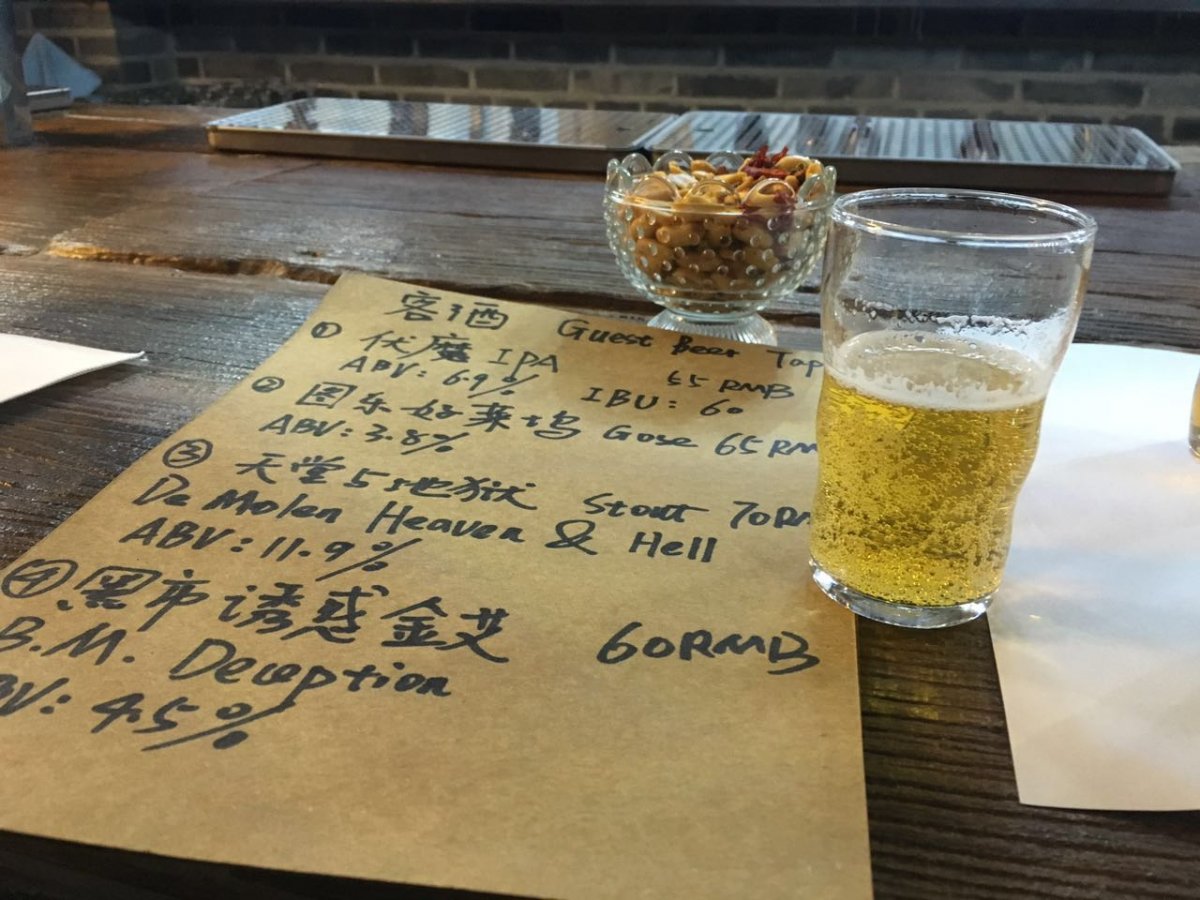 客酒 Guest Beer Tap
① 伏魔 IPA 55 RMB
ABV: 6.9% IBU: 60
② 图乐好莱坞 Gose 65 RM
ABV: 3.8%
③ 天堂与地狱 Stout 70RM
De Molen Heaven & Hell
ABV: 11.9%
④ 黑市诱惑金艾 60RMB
B.M. Deception
BV: 4.5%